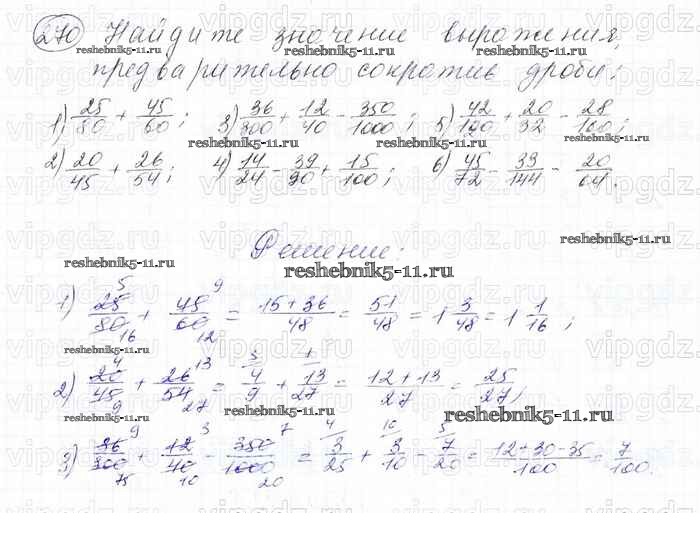 270 Найдите значение выражения,
предварительно сократив дроби:
1) 25/80 + 45/60; 3) 36/300 + 12/40 - 350/1000; 5) 42/100 + 20/32 - 28/100;
2) 20/45 + 26/54; 4) 14/24 - 39/90 + 15/100; 6) 45/72 - 33/144 - 20/64.
Решение:
1) 25/80 + 45/60 = 15+36/48 = 51/48 = 1 3/48 = 1 1/16;
2) 20/45 + 26/54 = 4/9 + 13/27 = 12+13/27 = 25/27;
3) 36/300 + 12/40 - 350/1000 = 3/25 + 3/10 - 7/20 = 12+30-35/100 = 7/100.
reshebnik5-11.ru
vipgdz.ru